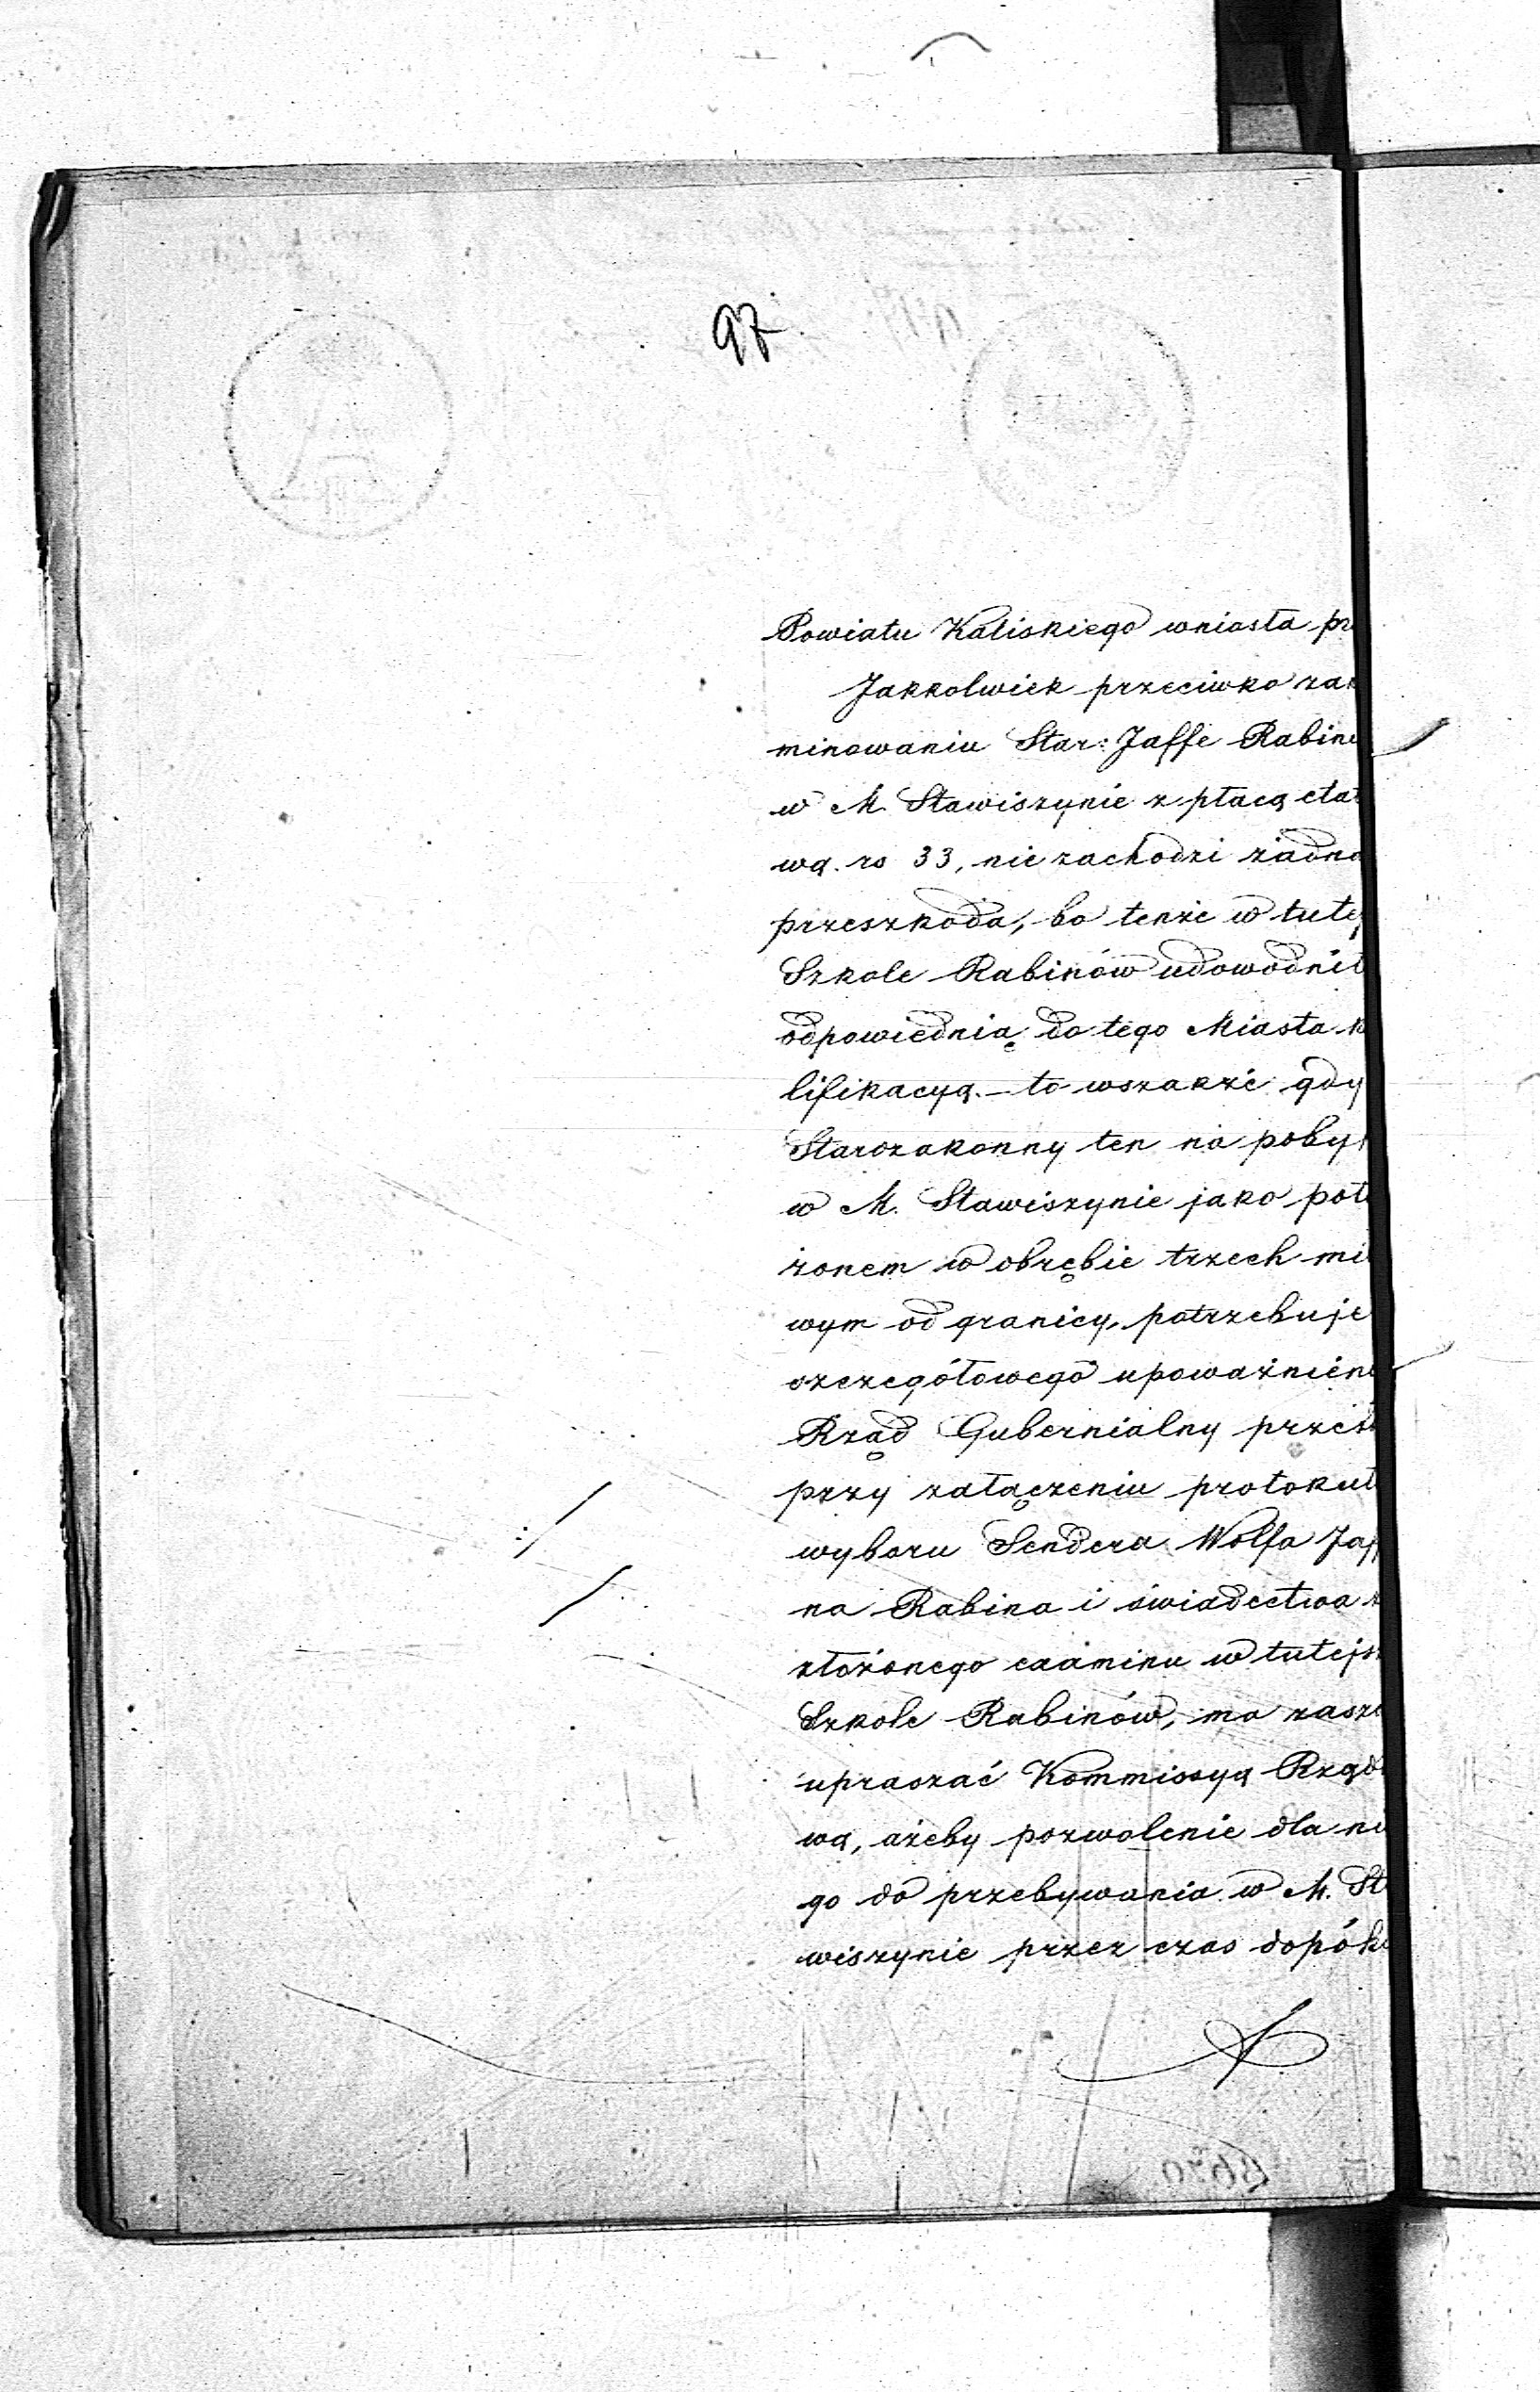 97
Powiatu Kaliskiego wniosła
Jakkolwiek przeciwko
minowaniu Star: Jaffe Rabine
w M. Stawiszynie z płacą etat
wą. rs 33, nie zachodzi żadna
przeszkoda, bo tenże w tutej
Szkole Rabinów udowodnił
odpowiednią do tego Miasta
lifikacyą. – to wszakże gdy
Starozakonny ten na pobyt
w M. Stawiszynie jako poło
żonem w obrębie trzech mi
wym od granicy, potrzebuje
szczegółowego upoważnieni
Rząd Gubernialny
przy załączeniu protokuł
wyboru Sendera Wolfa Jaf
na Rabina i świadectwa z
złożonego examinu w tutejs
Szkole Rabinów, ma zasz
upraszać Kommissyą Rządo
wą, ażeby pozwolenie dla nie
go do przebywania w M. Sta
wiszynie przez czas dopóki